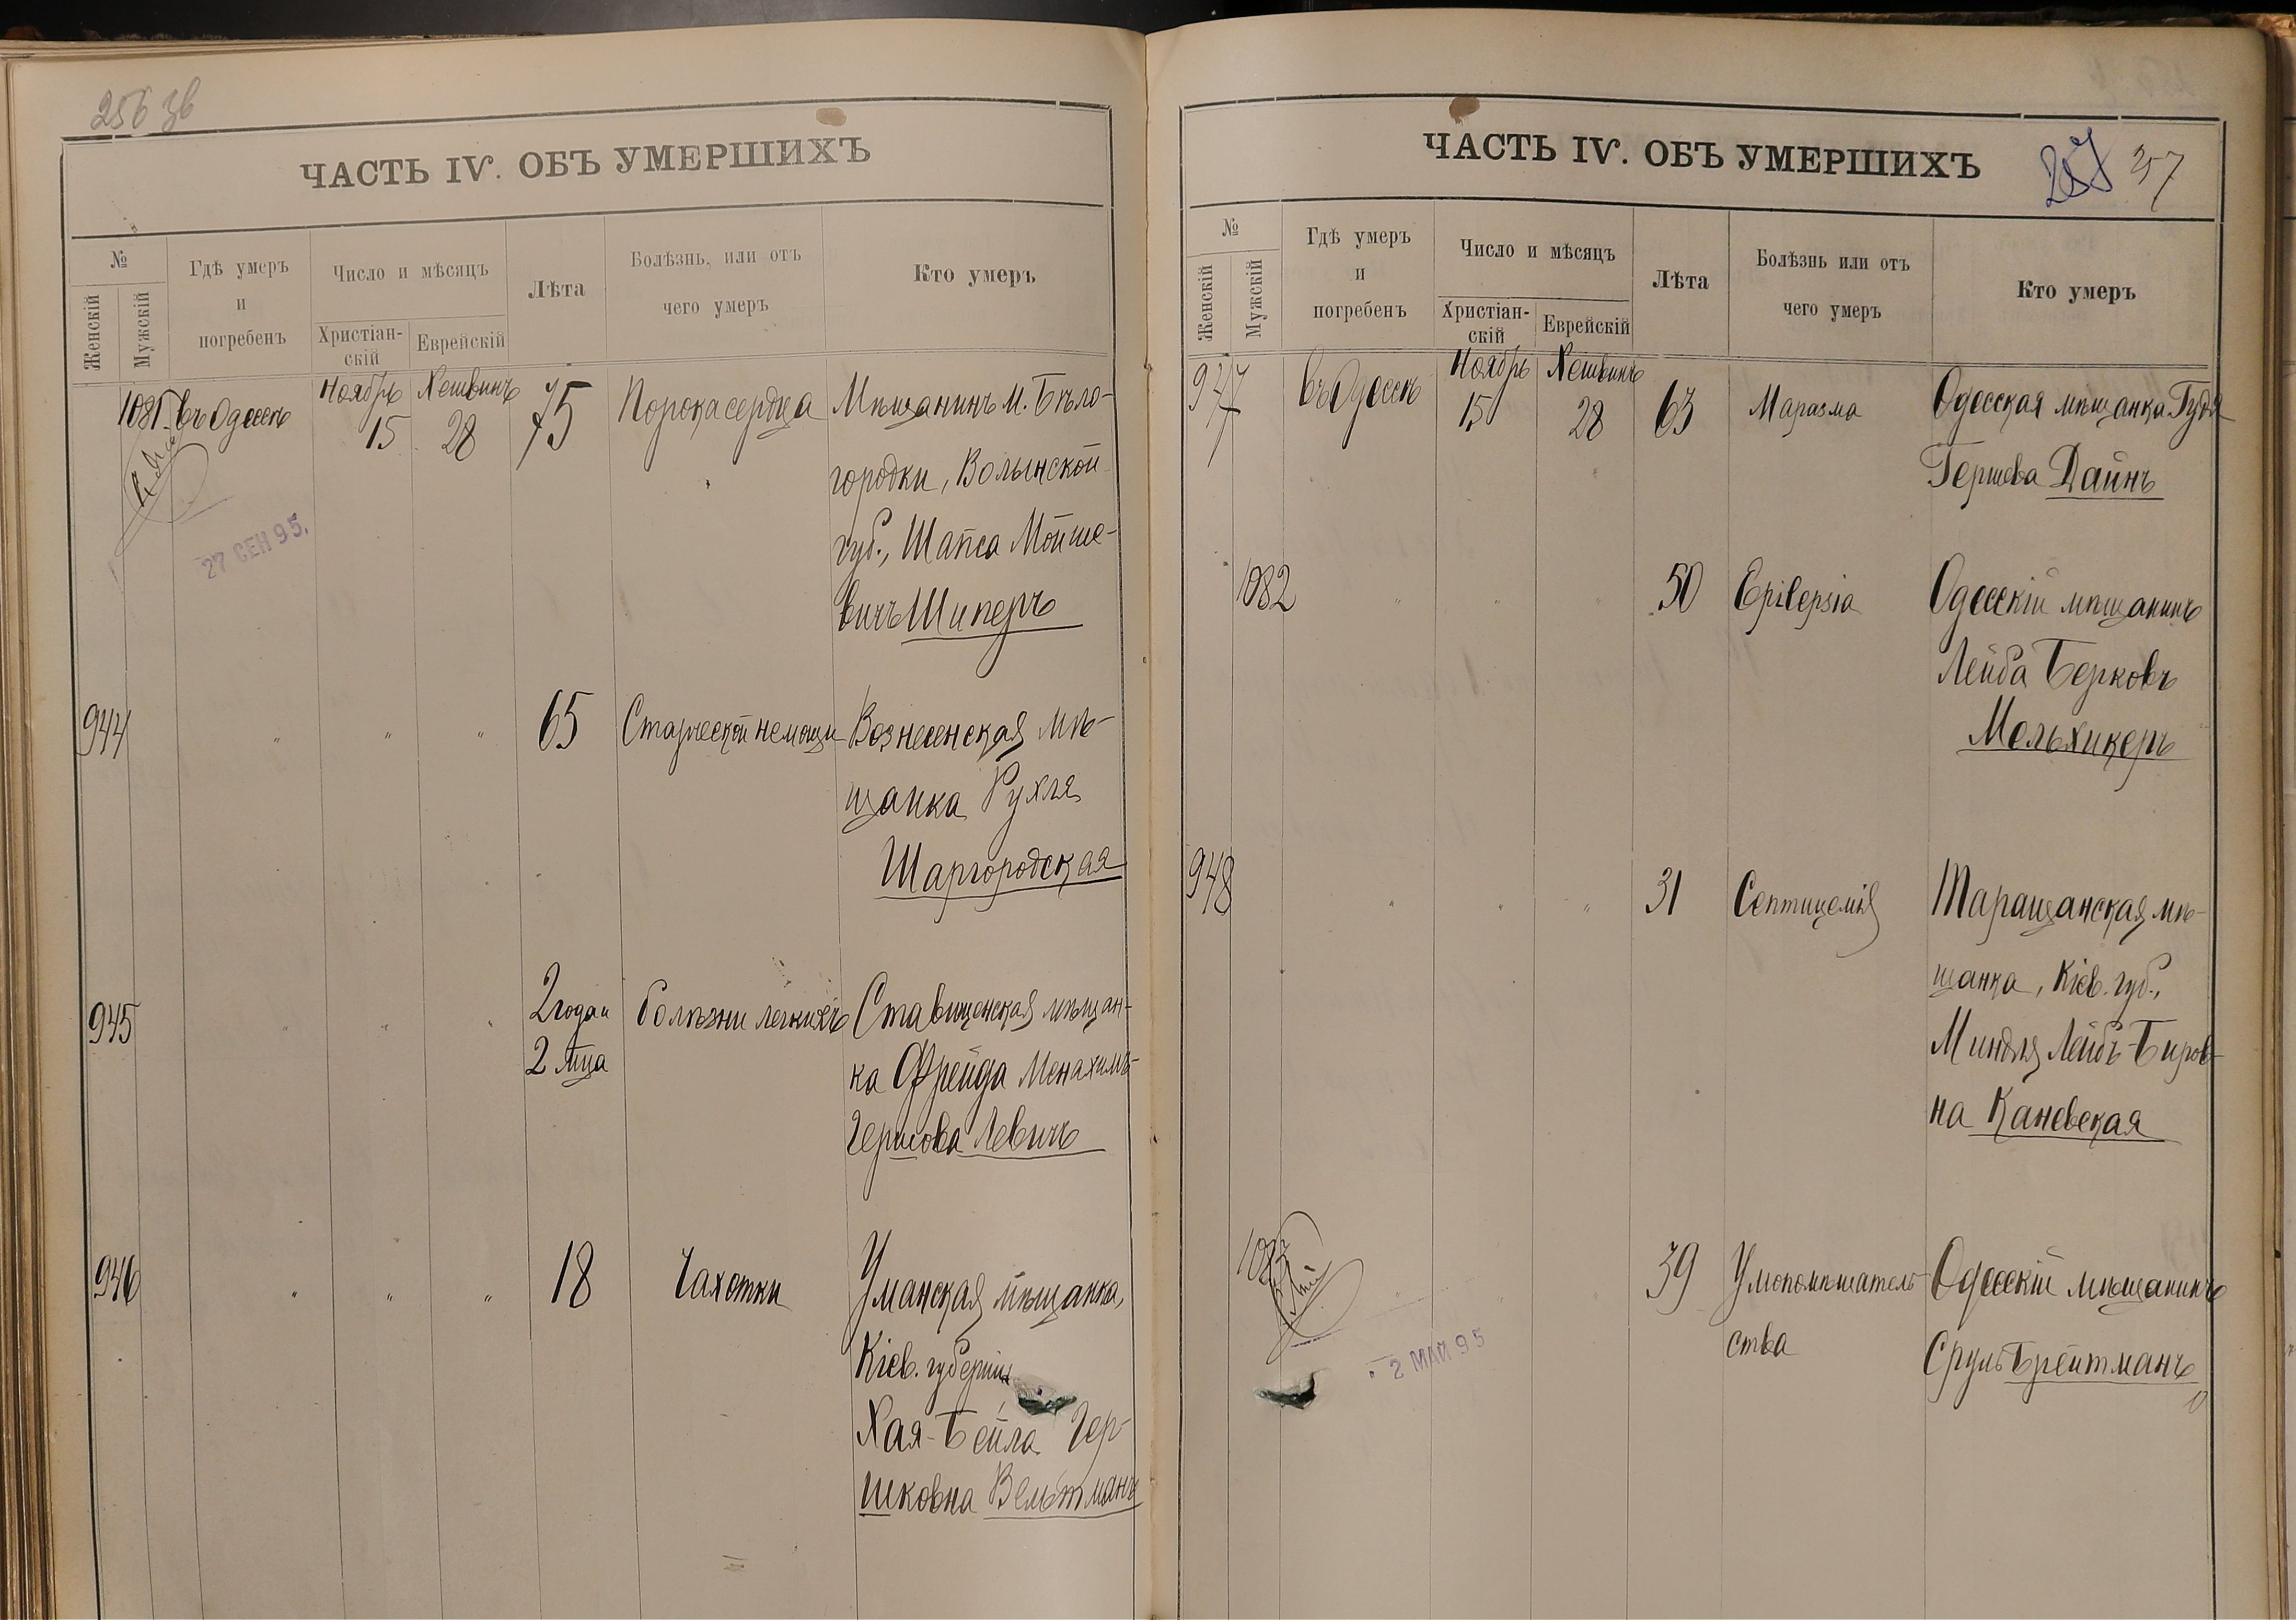 256 зв
ЧАСТЬ IV. ОБЪ УМЕРШИХЪ
№
Женскій
Мужскій
Гдѣ умеръ
и
погребенъ
Число и мѣсяцъ
Христіан-
скій
Еврейскій
Лѣта
Болѣзнь, или отъ
чего умеръ
Кто умеръ
1081 въ Одессѣ Ноябрь 15 Хешвинъ 28 75 Порока сердца Мѣщанинъ м. Бѣло-
городки, Волынской
губ., Шапса Мойше-
вичъ Шиперъ
27 СЕН 95.
944 " " " 65 Старческой немощи Вознесенская мѣ-
щанка Рухля
Шаргородская
945 " " " 2 года и болѣзни легкихъ Ставищенская мѣщан-
2 м-ца ка Фрейда Менахимъ-
Гершова Левичъ
946 " " " 18 Чахотки Уманская мѣщанка,
Кіев. губерніи
Хая-Бейла Гер-
шковна Вельтманъ
ЧАСТЬ IV. ОБЪ УМЕРШИХЪ
257 257
№
Женскій
Мужскій
Гдѣ умеръ
и
погребенъ
Число и мѣсяцъ
Христіан-
скій
Еврейскій
Лѣта
Болѣзнь или отъ
чего умеръ
Кто умеръ
947 въ Одессѣ Ноябрь 15 Хешвинъ 28 63 Маразма Одесская мѣщанка Гудя
Гершева Дайнъ
1082 " " " 50 Epilepsia Одесскій мѣщанинъ
Лейба Берковъ
Мельхикеръ
948 " " " 31 Септицемія Таращанская мѣ-
щанка, Кіев. губ.,
Миндля Лейбъ-Биров-
на Каневская
1083 " " " 39 Умопомѣшатель- Одесскій мѣщанинъ
ства Сруль Брейтманъ
2 МАЙ 95